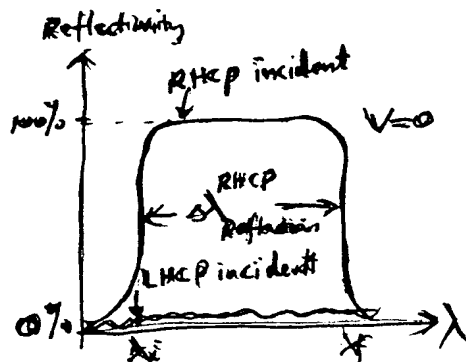 Reflectivity
RHCP incident
100%
V=0
RHCP
Δλ
Reflection
LHCP incident
0%
λ
λi
λf